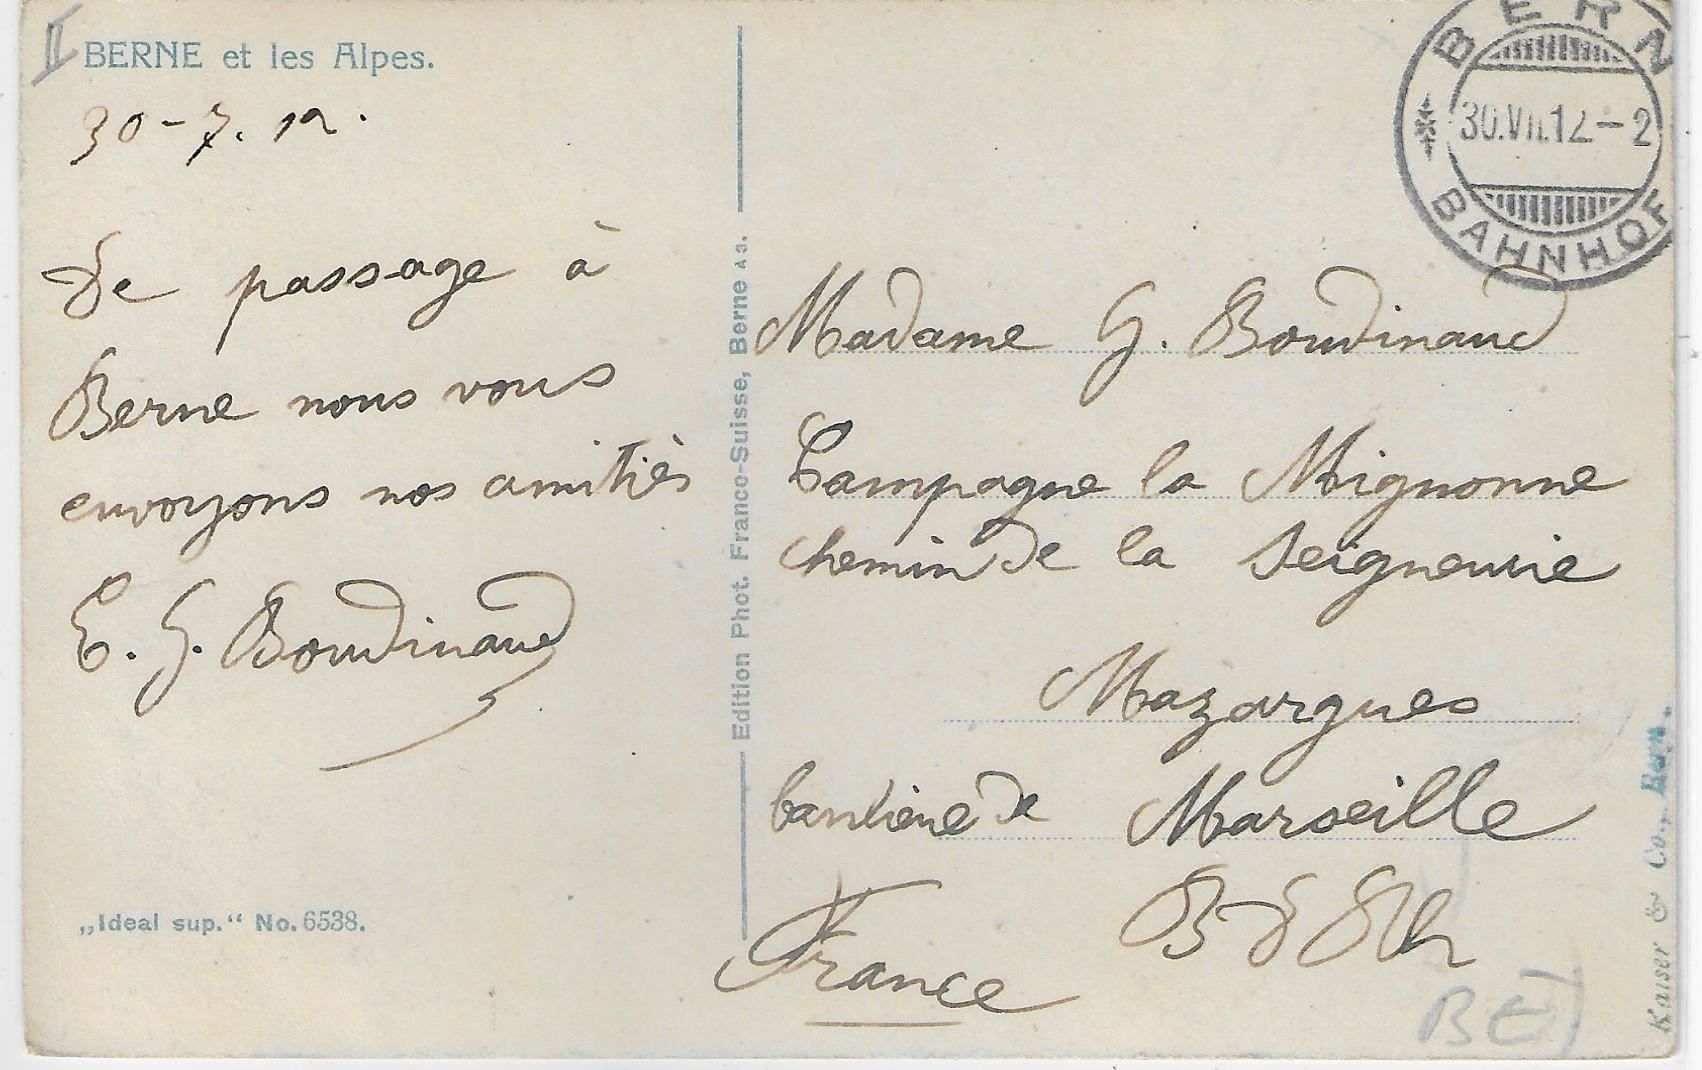 II
BERNE et les Alpes.
30-7. 12.
De passage à
Berne nous vous
envoyons nos amitiés
E. G. Boudinaud
„Ideal sup.“ No. 6538.
Edition Phot. Franco-Suisse, Berne A 3.
BERN
30.VII.12.-2
BAHNHOF
Madame G. Boudinaud
Campagne la Mignonne
chemin de la Seigneurie
Mazargues
banlieue de Marseille
B d Rh
France
Kaiser & Co., Bern.
BE